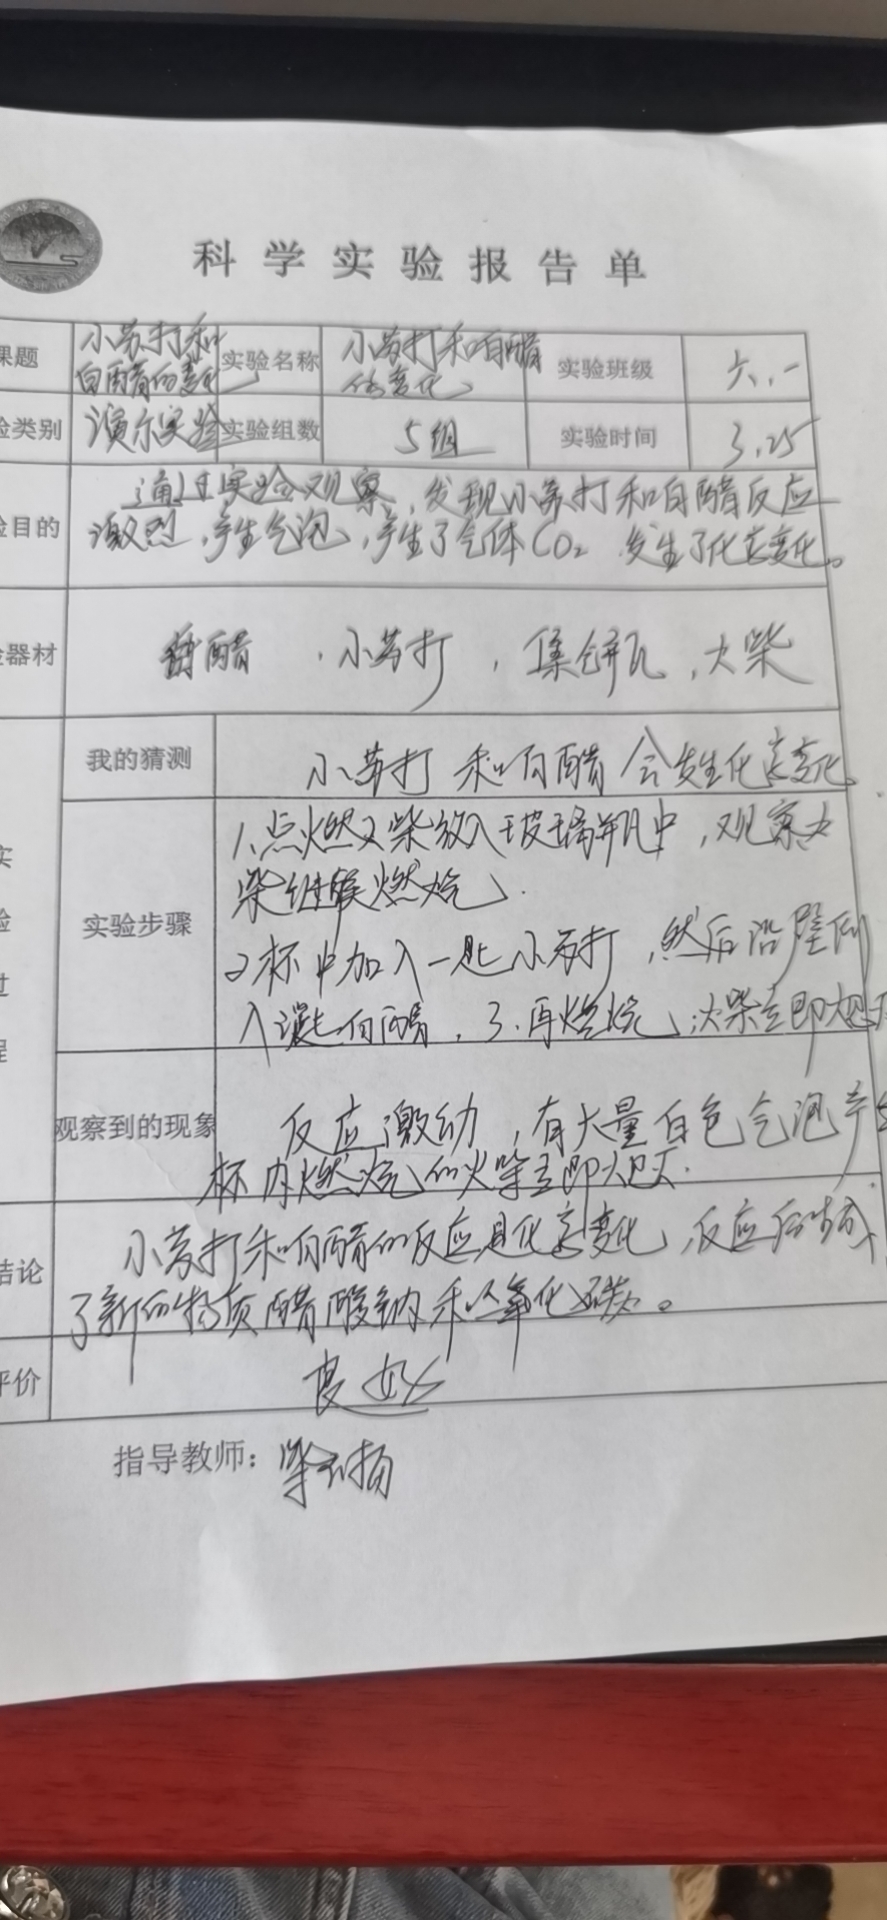 科学实验报告单
课题 小苏打和白醋的变化 实验名称 小苏打和白醋的变化 实验班级 六.一
验类别 演示实验 实验组数 5组 实验时间 3.25
验目的 通过实验观察,发现小苏打和白醋反应
激烈,产生气泡,产生了气体CO₂ 发生了化学变化。
验器材 醋.小苏打,集气瓶,火柴
我的猜测 小苏打和白醋会发生化学变化
实验步骤 1.点燃火柴放入玻璃瓶中,观察火
柴继续燃烧.
2杯中加入一匙小苏打,然后沿壁倒
入 白醋.3.再燃烧,火柴立即熄灭
实验过程
观察到的现象 反应激动,有大量白色气泡产生
杯内燃烧的火柴立即熄灭.
结论 小苏打和白醋的反应是化学变化,反应后生成
了新的物质醋酸钠和二氧化碳。
评价 良好
指导教师: